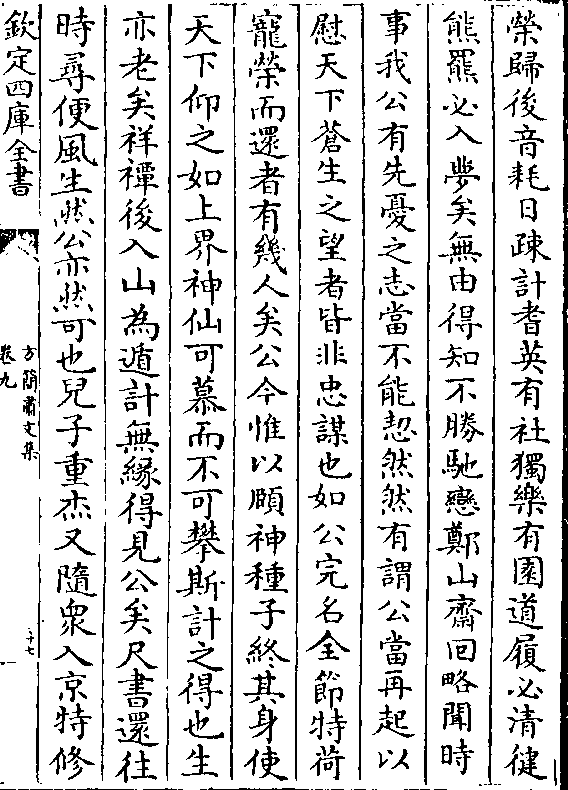 榮歸後音耗日踈計耆英有社獨樂有園道履必清健
熊羆必入夢矣無由得知不勝馳戀鄭山齋回略聞時
事我公有先憂之志當不能恝然然有謂公當再起以
慰天下蒼生之望者皆非忠謀也如公完名全節特荷
寵榮而還者有幾人矣公今惟以頤神種子終其身使
天下仰之如上界神仙可慕而不可攀斯計之得也生
亦老矣祥禫後入山為遁計無縁得見公矣尺書還往
時尋便風生然公亦然可也兒子重杰又隨衆入京特修
欽定四庫全書
方簡肅文集
卷九
三十七